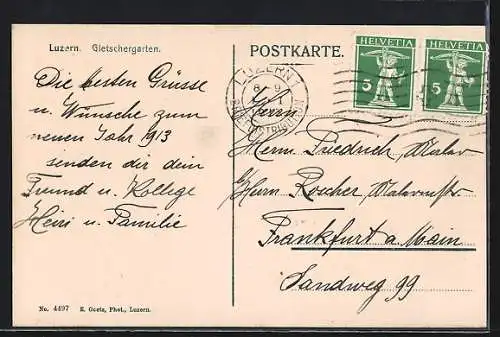 Luzern. Gletschergarten.
POSTKARTE.
HELVETIA
5
HELVETIA
5
LUZERN 1
Die besten Grüsse
u. Wünsche zum
neuen Jahr 1913
senden dir dein
Freund u. Kollege
Heiri u. Familie
Herrn
Herrn Friedrich, Maler
b/Herrn Roscher, Malermstr.
Frankfurt a Main
Sandweg 99
No. 4497 E. Goetz, Phot., Luzern.